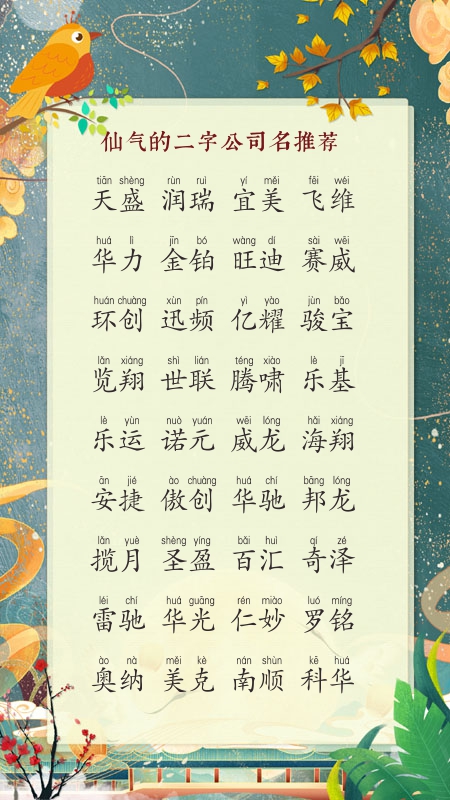 仙气的二字公司名推荐
tiān shèng rùn ruì yí měi fēi wéi
天盛 润瑞 宜美 飞维
huá lì jīn bó wàng dí sài wēi
华力 金铂 旺迪 赛威
huán chuàng xùn pín yì yào jùn bǎo
环创 迅频 亿耀 骏宝
lǎn xiáng shì lián téng xiào lè jī
览翔 世联 腾啸 乐基
lè yùn nuò yuán wēi lóng hǎi xiáng
乐运 诺元 威龙 海翔
ān jié ào chuàng huá chí bāng lóng
安捷 傲创 华驰 邦龙
lǎn yuè shèng yíng bǎi huì qí zé
揽月 圣盈 百汇 奇泽
léi chí huá guāng rén miào luó míng
雷驰 华光 仁妙 罗铭
ào nà měi kè nán shùn kē huá
奥纳 美克 南顺 科华